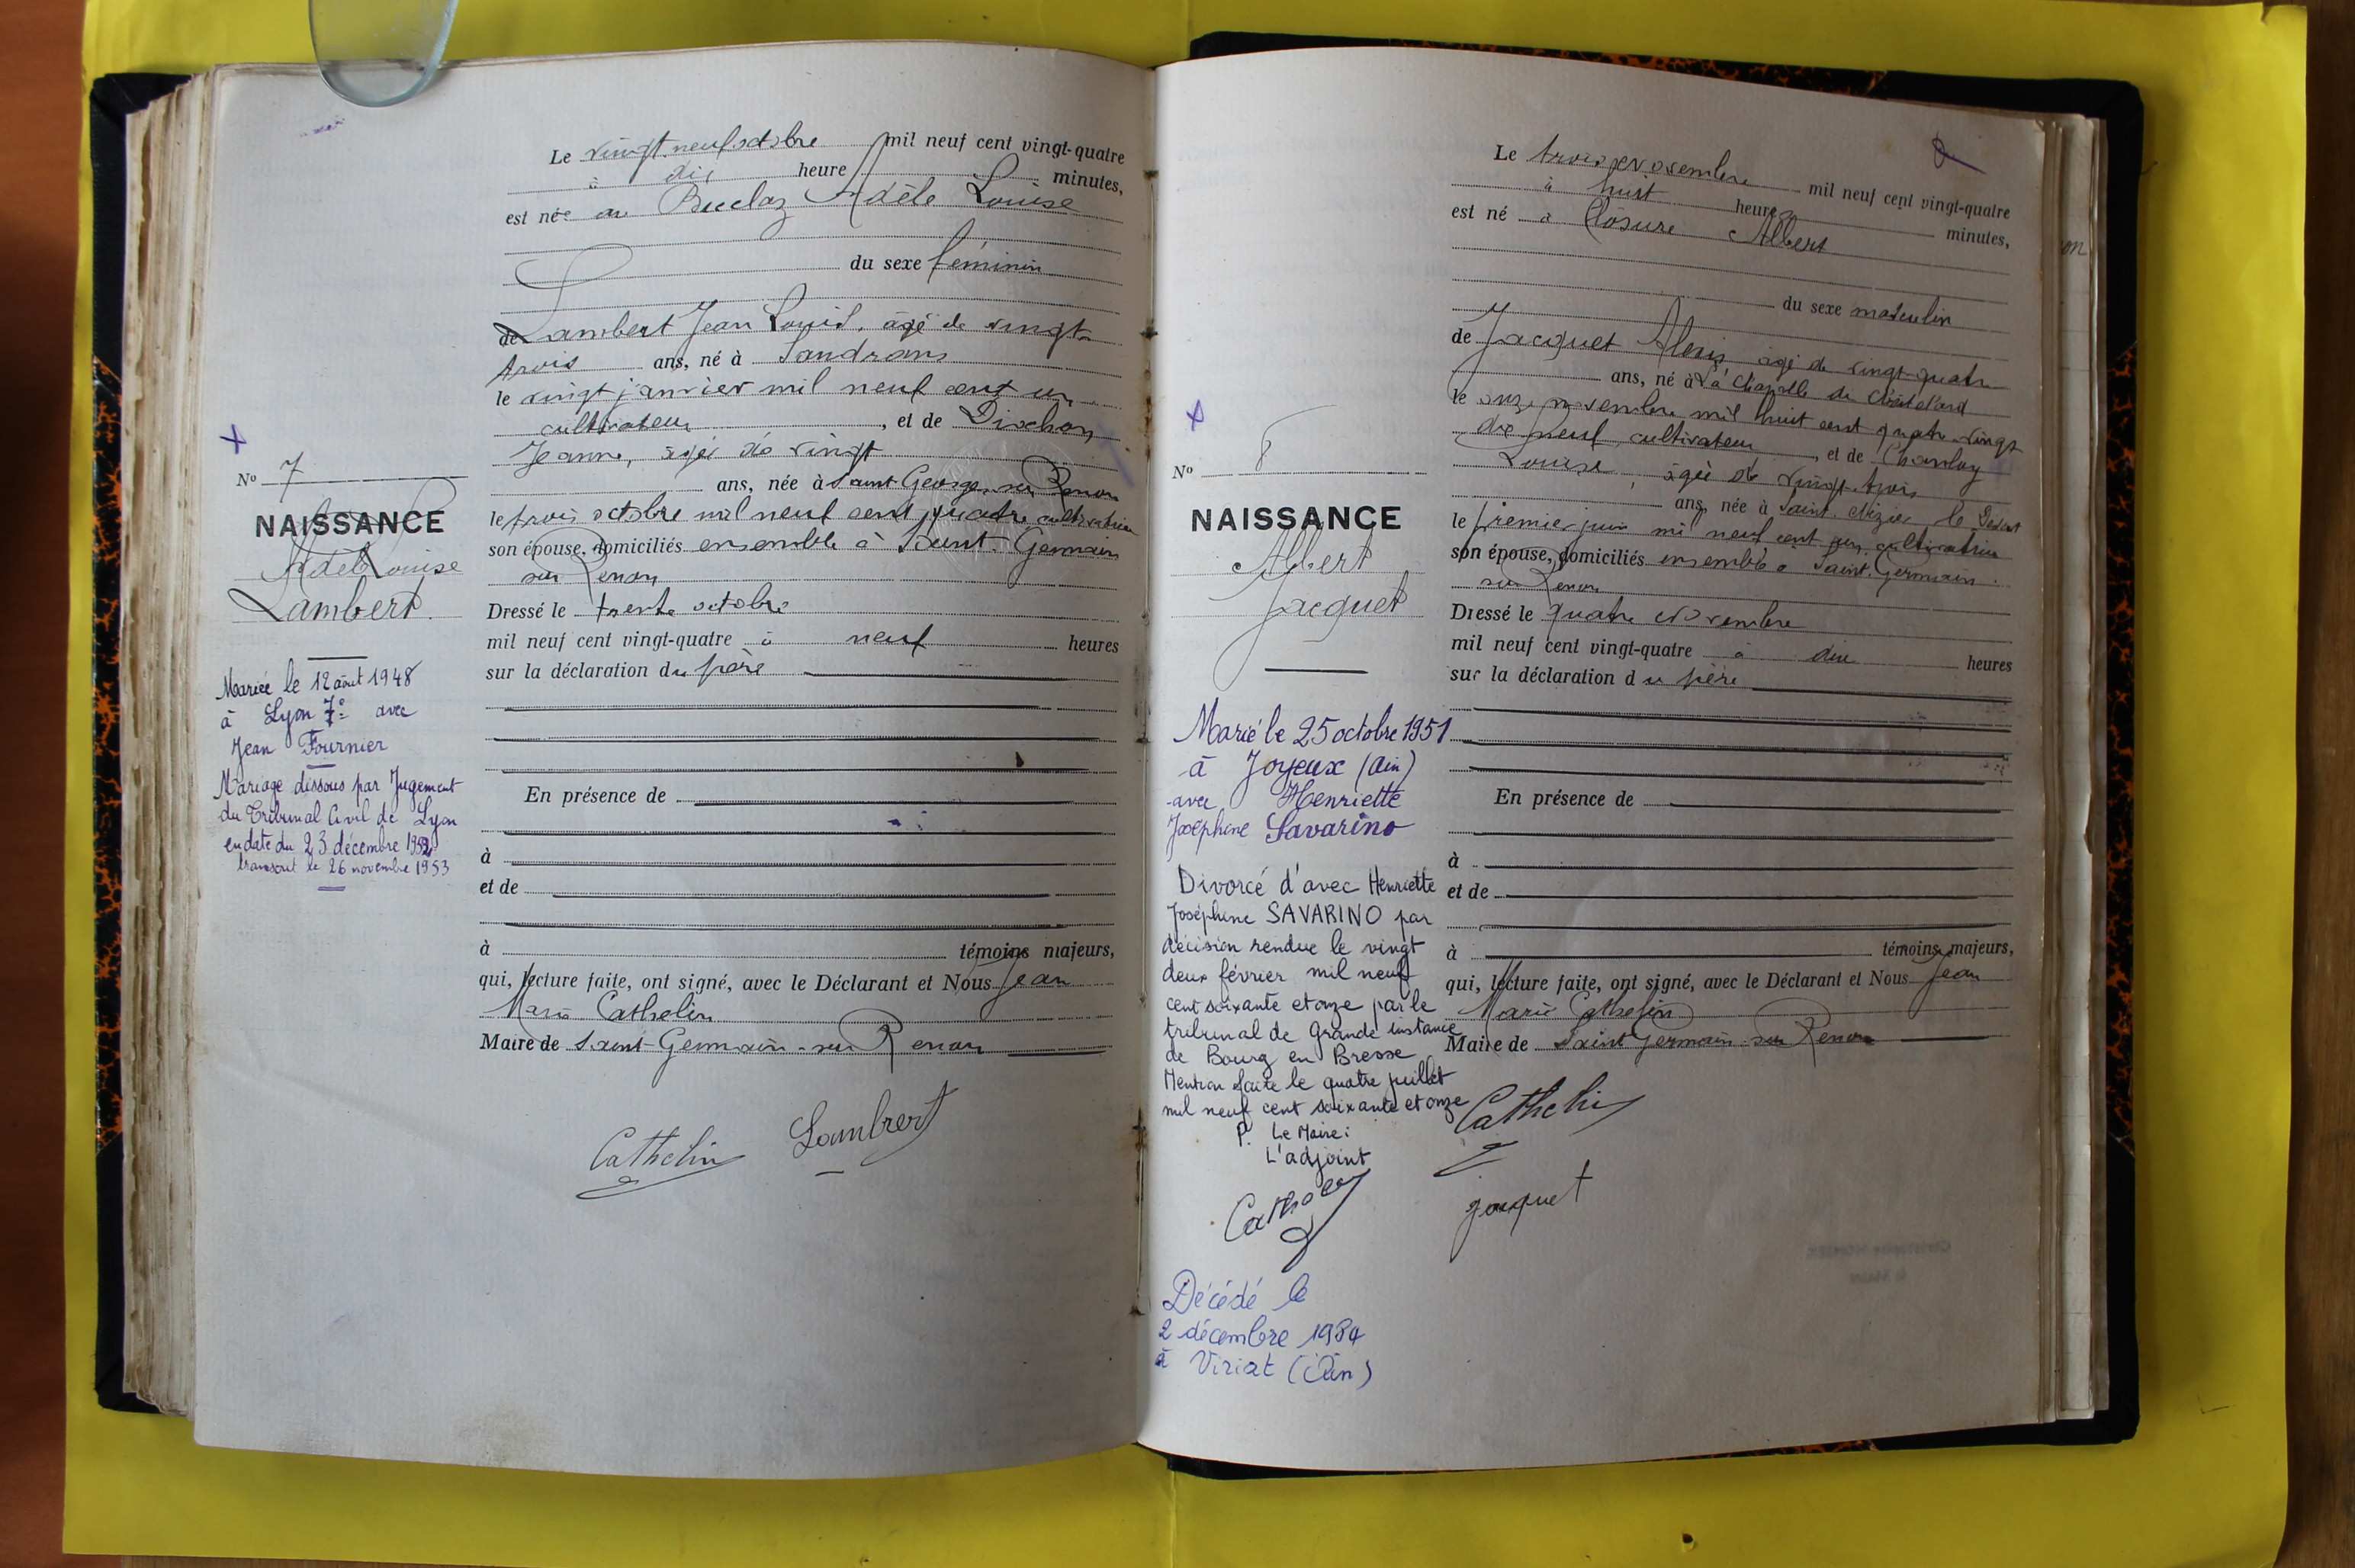 Le vingt neuf octobre mil neuf cent vingt-quatre
à dix heure minutes,
est née au Buclaz Adèle Louise
du sexe féminin
de Lambert Jean Louis, âgé de vingt
trois ans, né à Sandrans
le vingt janvier mil neuf cent un
cultivateur, et de Dischon
Jeanne, âgée de vingt
ans, née à Saint Georges sur Renon
le trois octobre mil neuf cent quatre cultivatrice
son épouse, domiciliés ensemble à Saint-Germain
sur Renon
Dressé le trente octobre
mil neuf cent vingt-quatre à neuf heures
sur la déclaration du père
En présence de
à
et de
à témoins majeurs,
qui, lecture faite, ont signé, avec le Déclarant et Nous Jean
Marie Cathelin
Maire de Saint-Germain-sur Renon
Cathelin Lambert
No 7
NAISSANCE
Adèle Louise
Lambert
Mariée le 12 août 1948
à Lyon 7e avec
Jean Fournier
Mariage dissous par Jugement
du Tribunal Civil de Lyon
en date du 23 décembre 1952
transcrit le 26 novembre 1953
Le trois novembre mil neuf cent vingt-quatre
à huit heures minutes,
est né à Closure Albert
du sexe masculin
de Jacquet Alexis âgé de vingt quatre
ans, né à La Chapelle du Châtelard
le onze novembre mil huit cent quatre vingt
dix neuf, cultivateur, et de Chanloy
Louise, âgée de vingt-trois
ans, née à Saint-Nizier le Désert
le premier juin mil neuf cent un, cultivatrice
son épouse, domiciliés ensemble à Saint-Germain
sur Renon
Dressé le quatre Novembre
mil neuf cent vingt-quatre à dix heures
sur la déclaration du père
En présence de
à
et de
à témoins majeurs,
qui, lecture faite, ont signé, avec le Déclarant et Nous Jean
Marie Cathelin
Maire de Saint Germain sur Renon
Cathelin
jacquet
No 8
NAISSANCE
Albert
Jacquet
Marié le 25 octobre 1951
à Joyeux (Ain)
avec Henriette
Joséphine Savarino
Divorcé d'avec Henriette
Joséphine SAVARINO par
décision rendue le vingt
deux février mil neuf
cent soixante et onze par le
tribunal de Grande instance
de Bourg en Bresse
Mention faite le quatre juillet
mil neuf cent soixante et onze
P. Le Maire:
L'adjoint
Décédé le
2 décembre 1984
à Viriat (Ain)